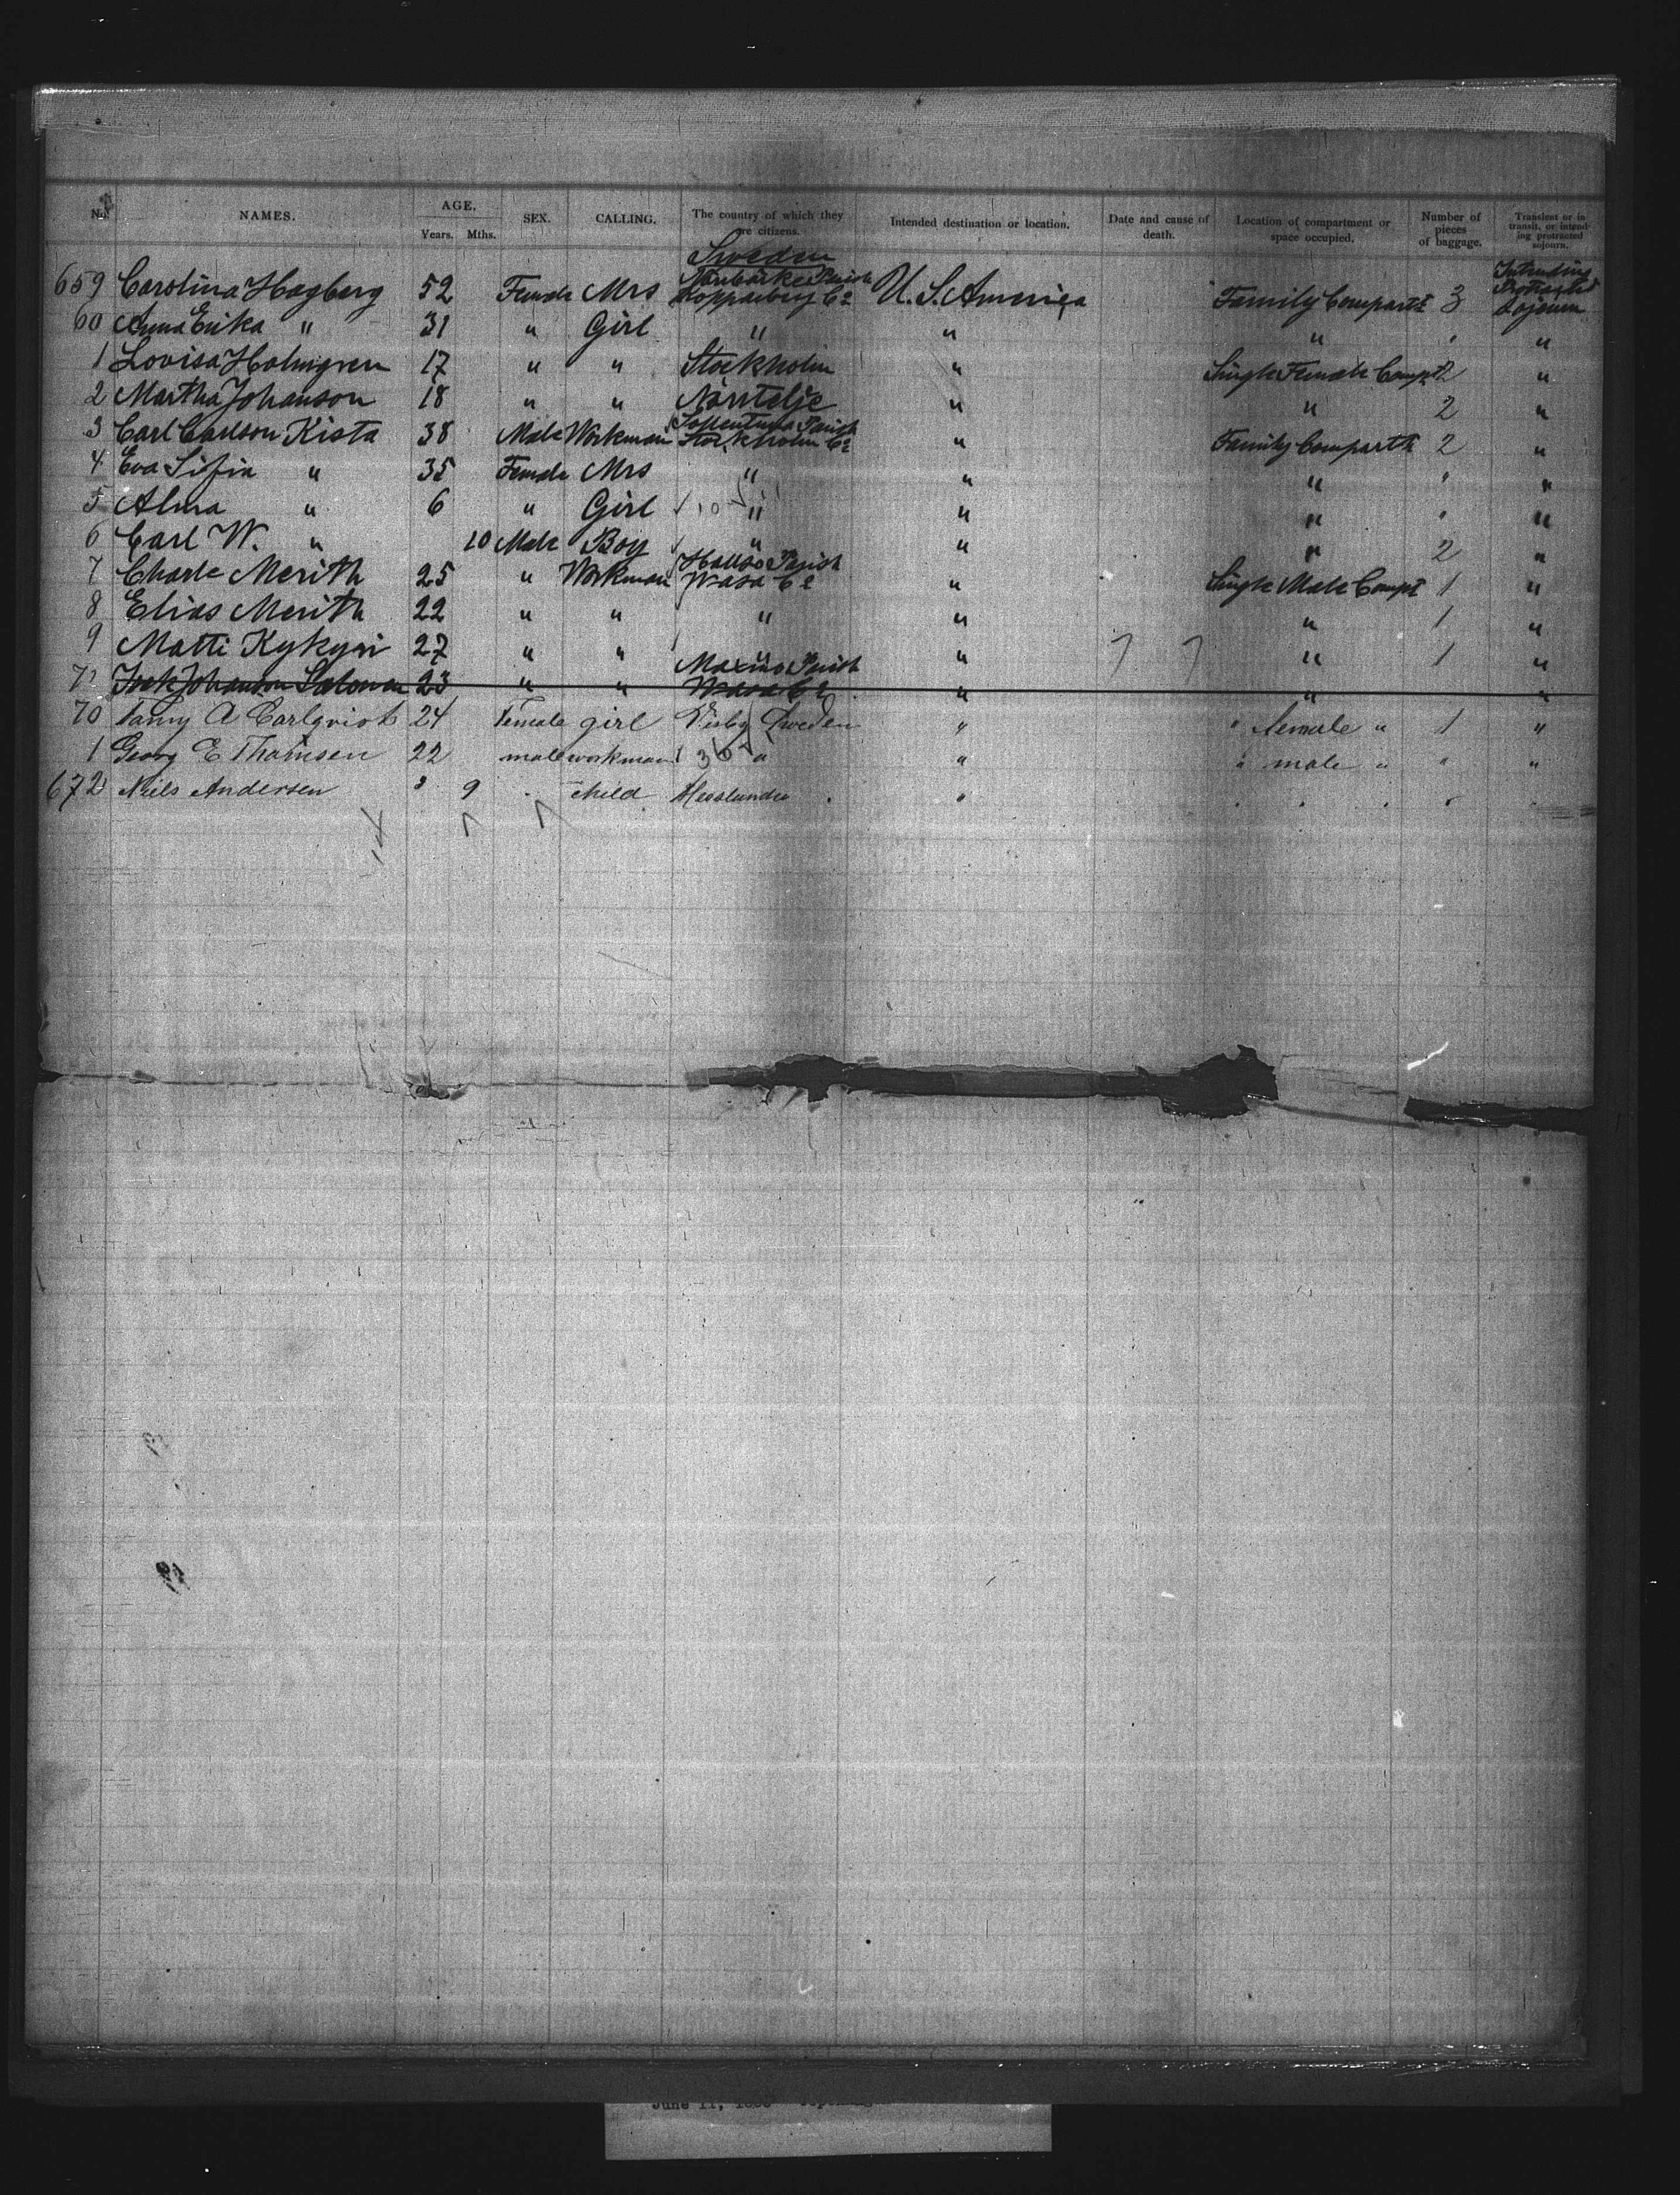 No. NAMES. AGE. Years. Mths. SEX. CALLING. The country of which they are citizens. Intended destination or location. Date and cause of death. Location of compartment or space occupied. Number of pieces of baggage. Transient or in transit, or intending protracted sojourn.
Sweden
659 Carolina Hagberg 52 Female Mrs Parish Kopparberg Co U. S. America Family Compartt 3 Intending Protracted Sojourn
60 Anna Erika " 31 " Girl " " " " "
1 Lovisa Holmgren 17 " " Stockholm " Single Female Compt 2 "
2 Martha Johanson 18 " " Norrtelje " " 2 "
3 Carl Carlson Kista 38 Male Workman Sollentuna Parish Stockholm Co " Family Compartt 2 "
4 Eva Sofia " 35 Female Mrs " " " " "
5 Alma " 6 " Girl " " " " "
6 Carl W. " 10 Male Boy " " " 2 "
7 Charle Merith 25 " Workman Parish Wasa Co " Single Male Compt 1 "
8 Elias Merith 22 " " " " " 1 "
9 Matti Kykyri 27 " " " " " 1 "
Johanson Salomon 23 " " Maxmo Parish Wasa Co " " "
70 Fanny A Carlqvist 24 Female girl Visby Sweden " " female " 1 "
1 Georg E Thomsen 22 male workman " " " male " " "
672 Niels Andersen 9 child " " " " " "
June 11,